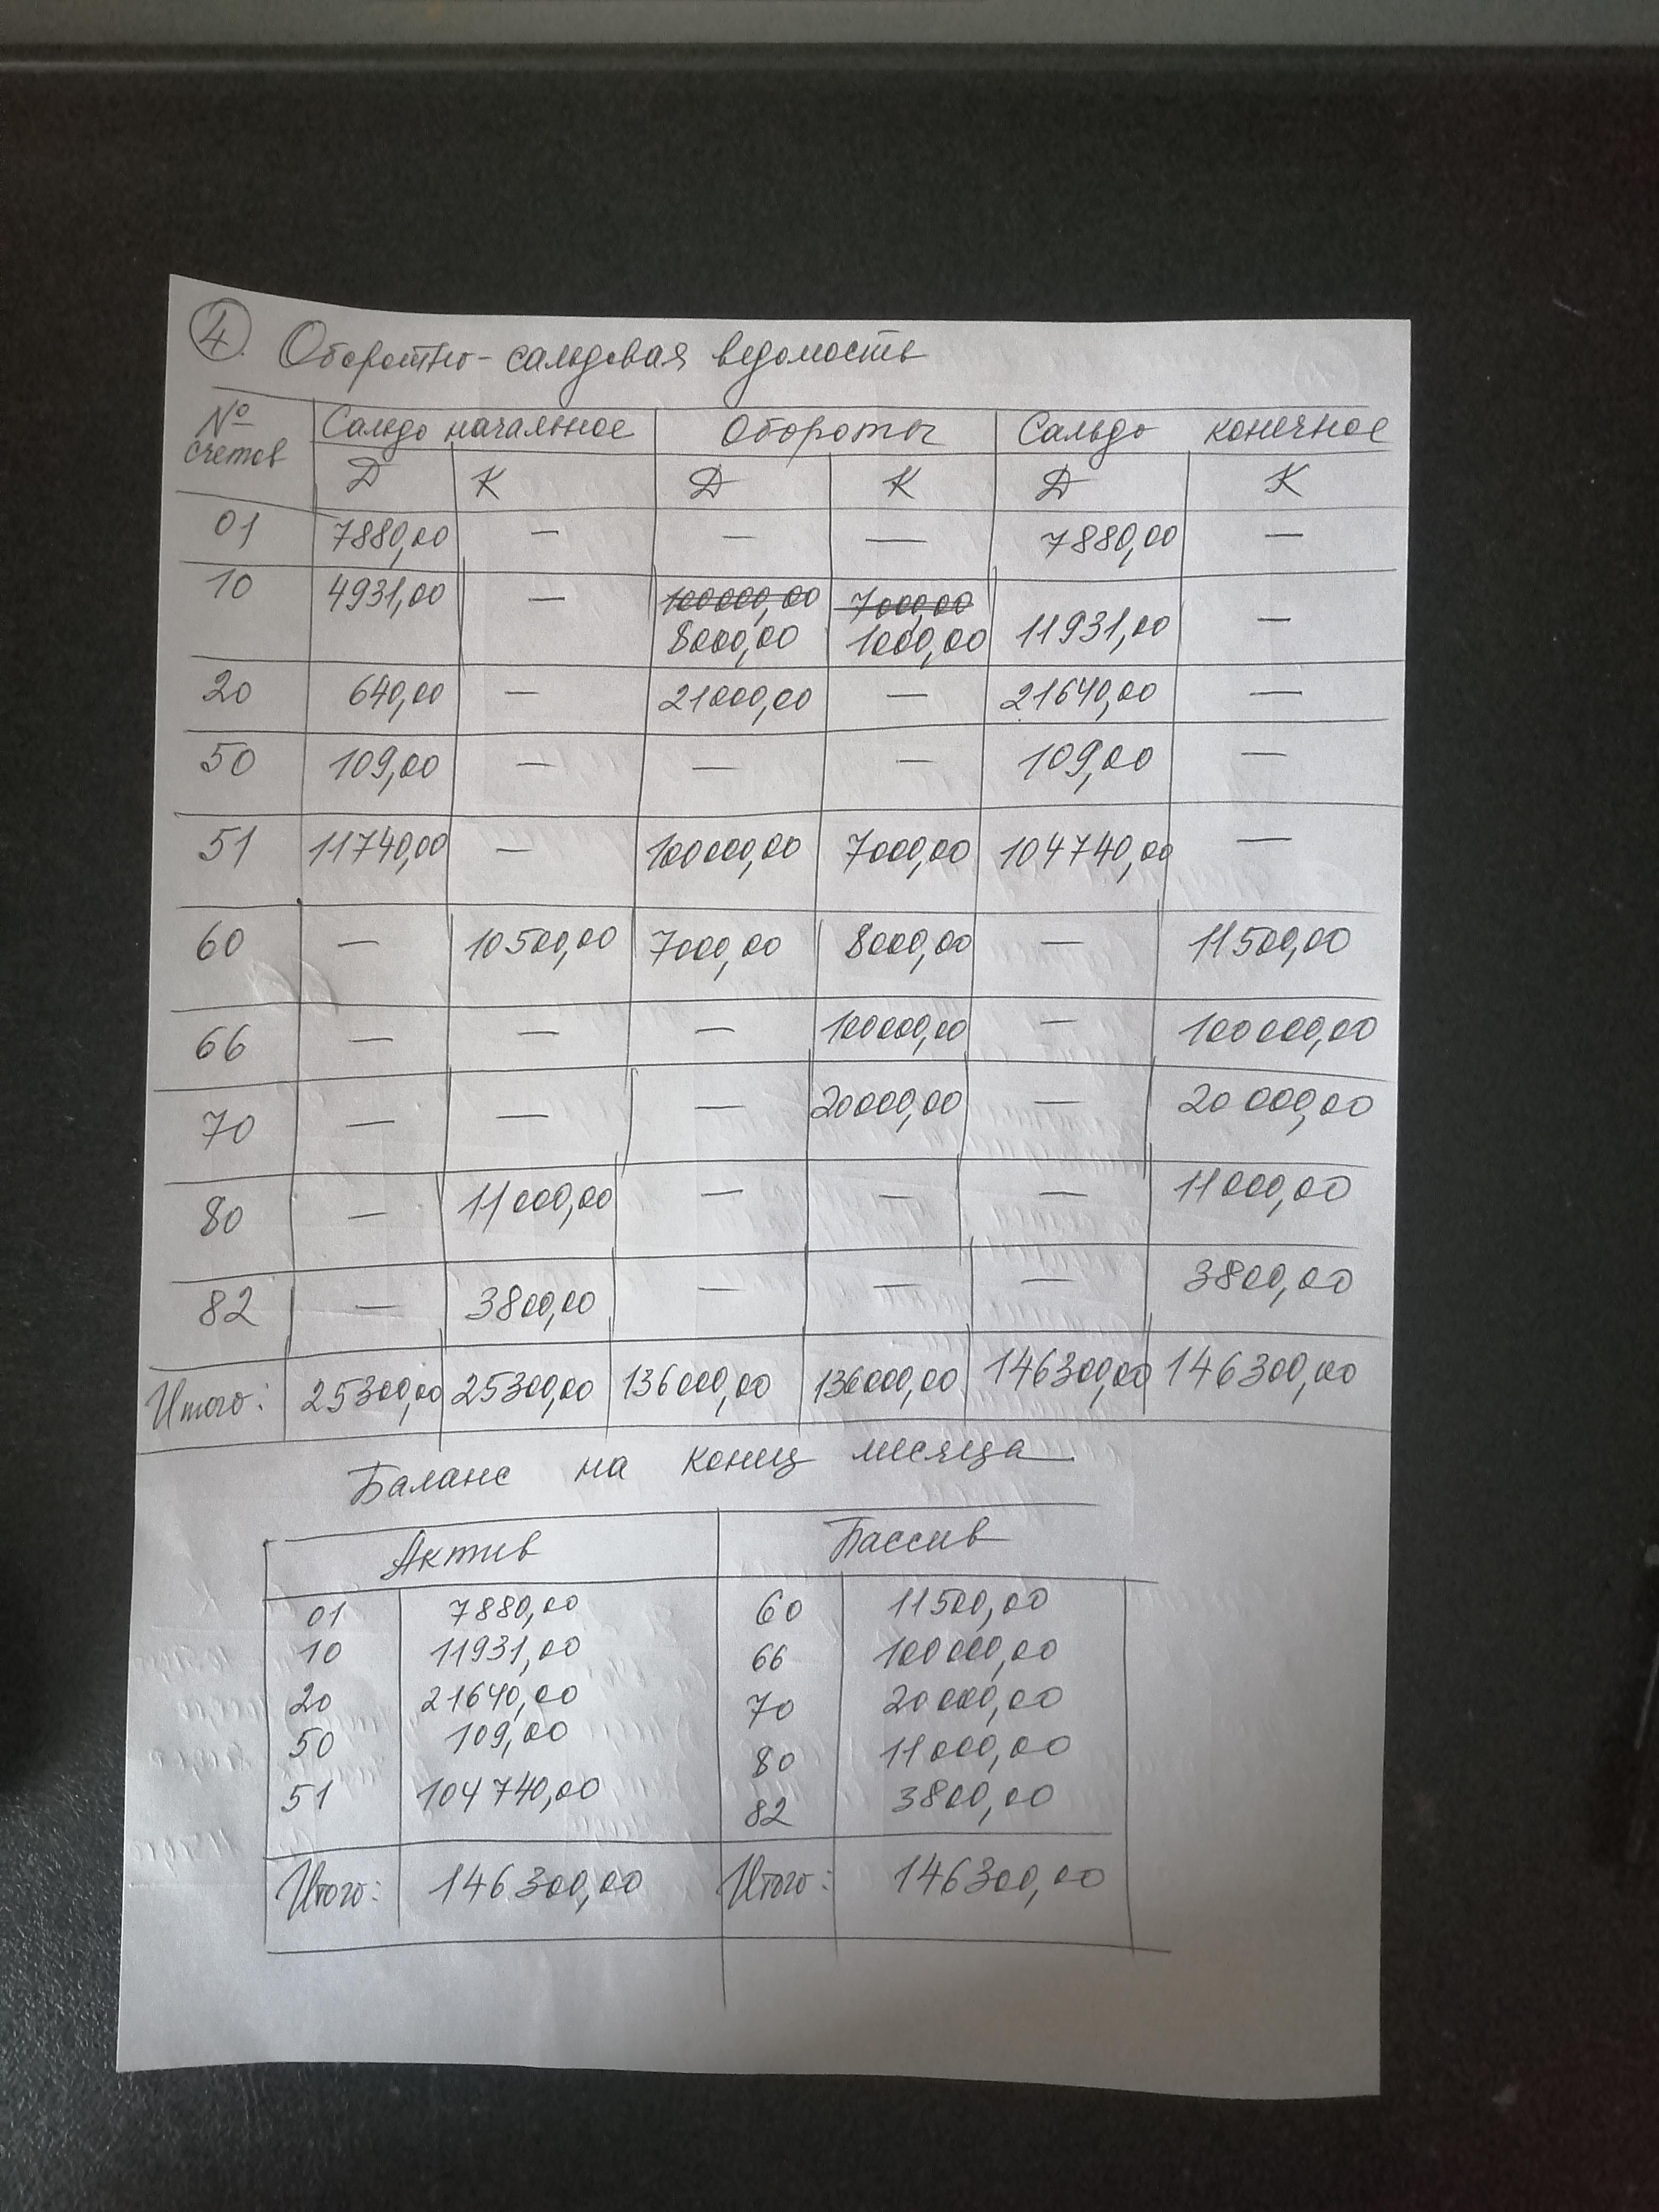 4. Оборотно-сальдовая ведомость
№ счетов Сальдо начальное Обороты Сальдо конечное
Д К Д К Д К
01 7880,00 — — — 7880,00 —
10 4931,00 — 100000,00 7000,00
8000,00 1000,00 11931,00 —
20 640,00 — 21000,00 — 21640,00 —
50 109,00 — — — 109,00 —
51 11740,00 — 100000,00 7000,00 104740,00 —
60 — 10500,00 7000,00 8000,00 — 11500,00
66 — — — 100000,00 — 100000,00
70 — — — 20000,00 — 20000,00
80 — 11000,00 — — — 11000,00
82 — 3800,00 — — — 3800,00
Итого: 25300,00 25300,00 136000,00 136000,00 146300,00 146300,00
Баланс на конец месяца
Актив Пассив
01 7880,00 60 11500,00
10 11931,00 66 100000,00
20 21640,00 70 20000,00
50 109,00 80 11000,00
51 104740,00 82 3800,00
Итого: 146300,00 Итого: 146300,00